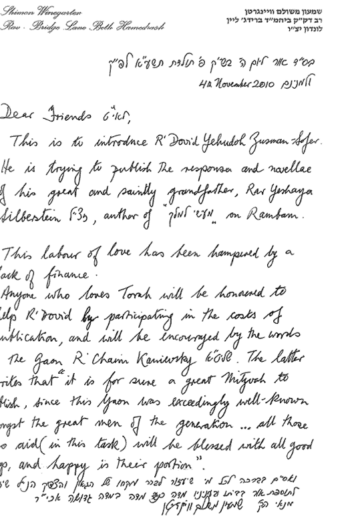 Shimon Winegarten
Rav - Bridge Lane Beth Hamedrash
שמעון משולם וויינגרטן
רב דק"ק ביהמ"ד ברידג' ליין
לונדון יצ"ו
בס"ד אור ליום ה' בש"ק פ' תולדת תשע"א לפ"ק
למנינם 4th November 2010
Dear Friends
This is to introduce R' Dovid Yehudoh Zusman-Sofer.
He is trying to publish the responsa and novellae
of his great and saintly grandfather, Rav Yeshaya
Silberstein זצ"ל, author of "מעשי למלך" on Rambam.
This labour of love has been hampered by a
lack of finance.
Anyone who loves Torah will be honoured to
help R' Dovid by participating in the costs of
publication, and will be encouraged by the words
The Gaon R' Chaim Kanievsky שליט"א. The latter
writes that "it is for sure a great Mitzvah to
publish, since this Gaon was exceedingly well-known
amongst the great men of the generation ... all those
who aid (in this task) will be blessed with all good
and happy is their portion".